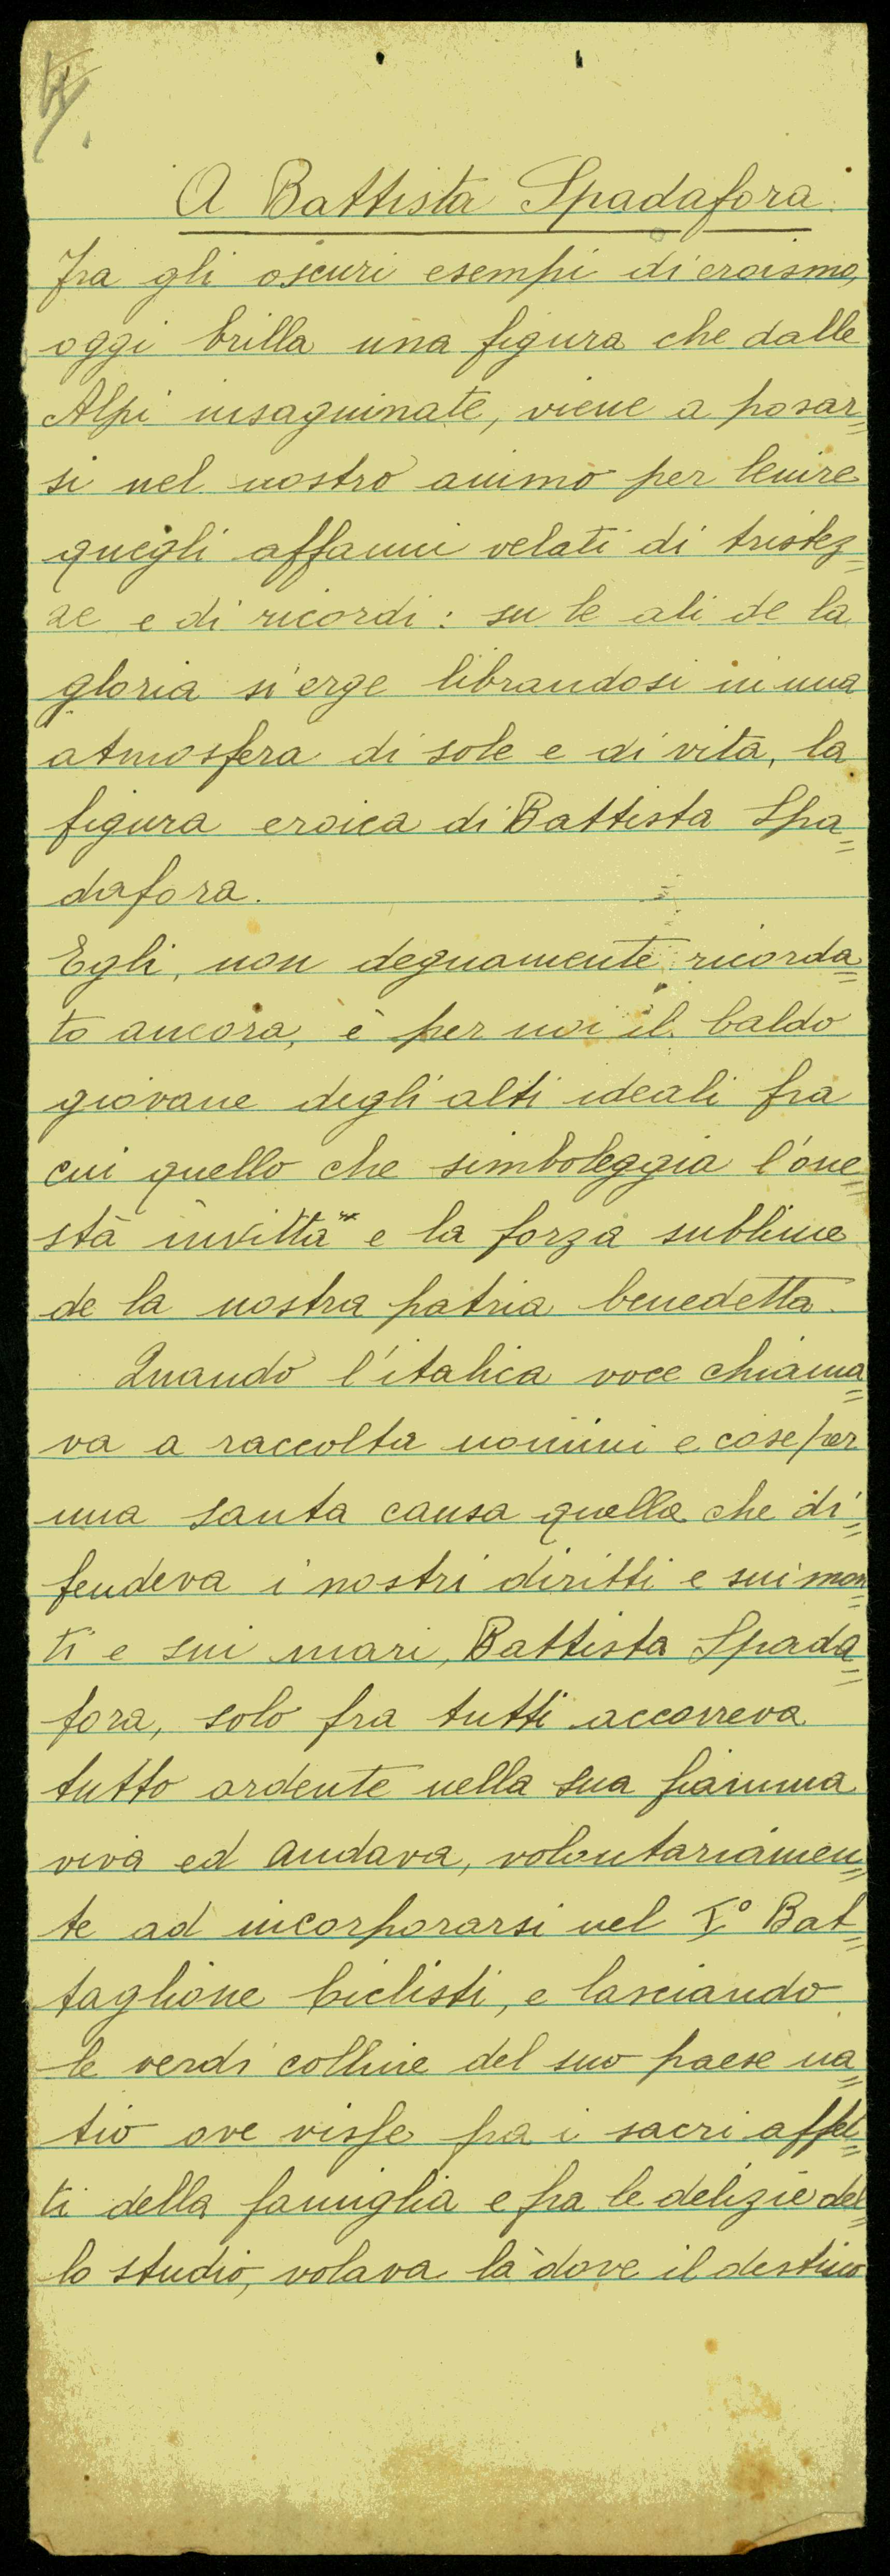 A Battista Spadafora.
Fra gli oscuri esempi di eroismo,
oggi brilla una figura che dalle
Alpi insaguinate, viene a posar=
si nel nostro animo per lenire
quegli affanni velati di tristez=
ze e di ricordi: su le ali de la
gloria si erge librandosi in una
atmosfera di sole e di vita, la
figura eroica di Battista Spa=
dafora.
Egli, non degnamente ricorda=
to ancora, è per noi il baldo
giovane degli alti ideali fra
cui quello che simboleggia l'one=
stà invitta e la forza sublime
de la nostra patria benedetta.
Quando l'italica voce chiama=
va a raccolta uomini e cose per
una santa causa quella che di=
fendeva i nostri diritti e sui mon=
ti e sui mari, Battista Spada=
fora, solo fra tutti accorreva
tutto ardente nella sua fiamma
viva ed andava, volontariamen=
te ad incorporarsi nel I° Bat=
taglione biclisti, e lasciando
le verdi colline del suo paese na=
tio ove visse fra i sacri affet=
ti della famiglia e fra le delizie del=
lo studio, volava là dove il destino